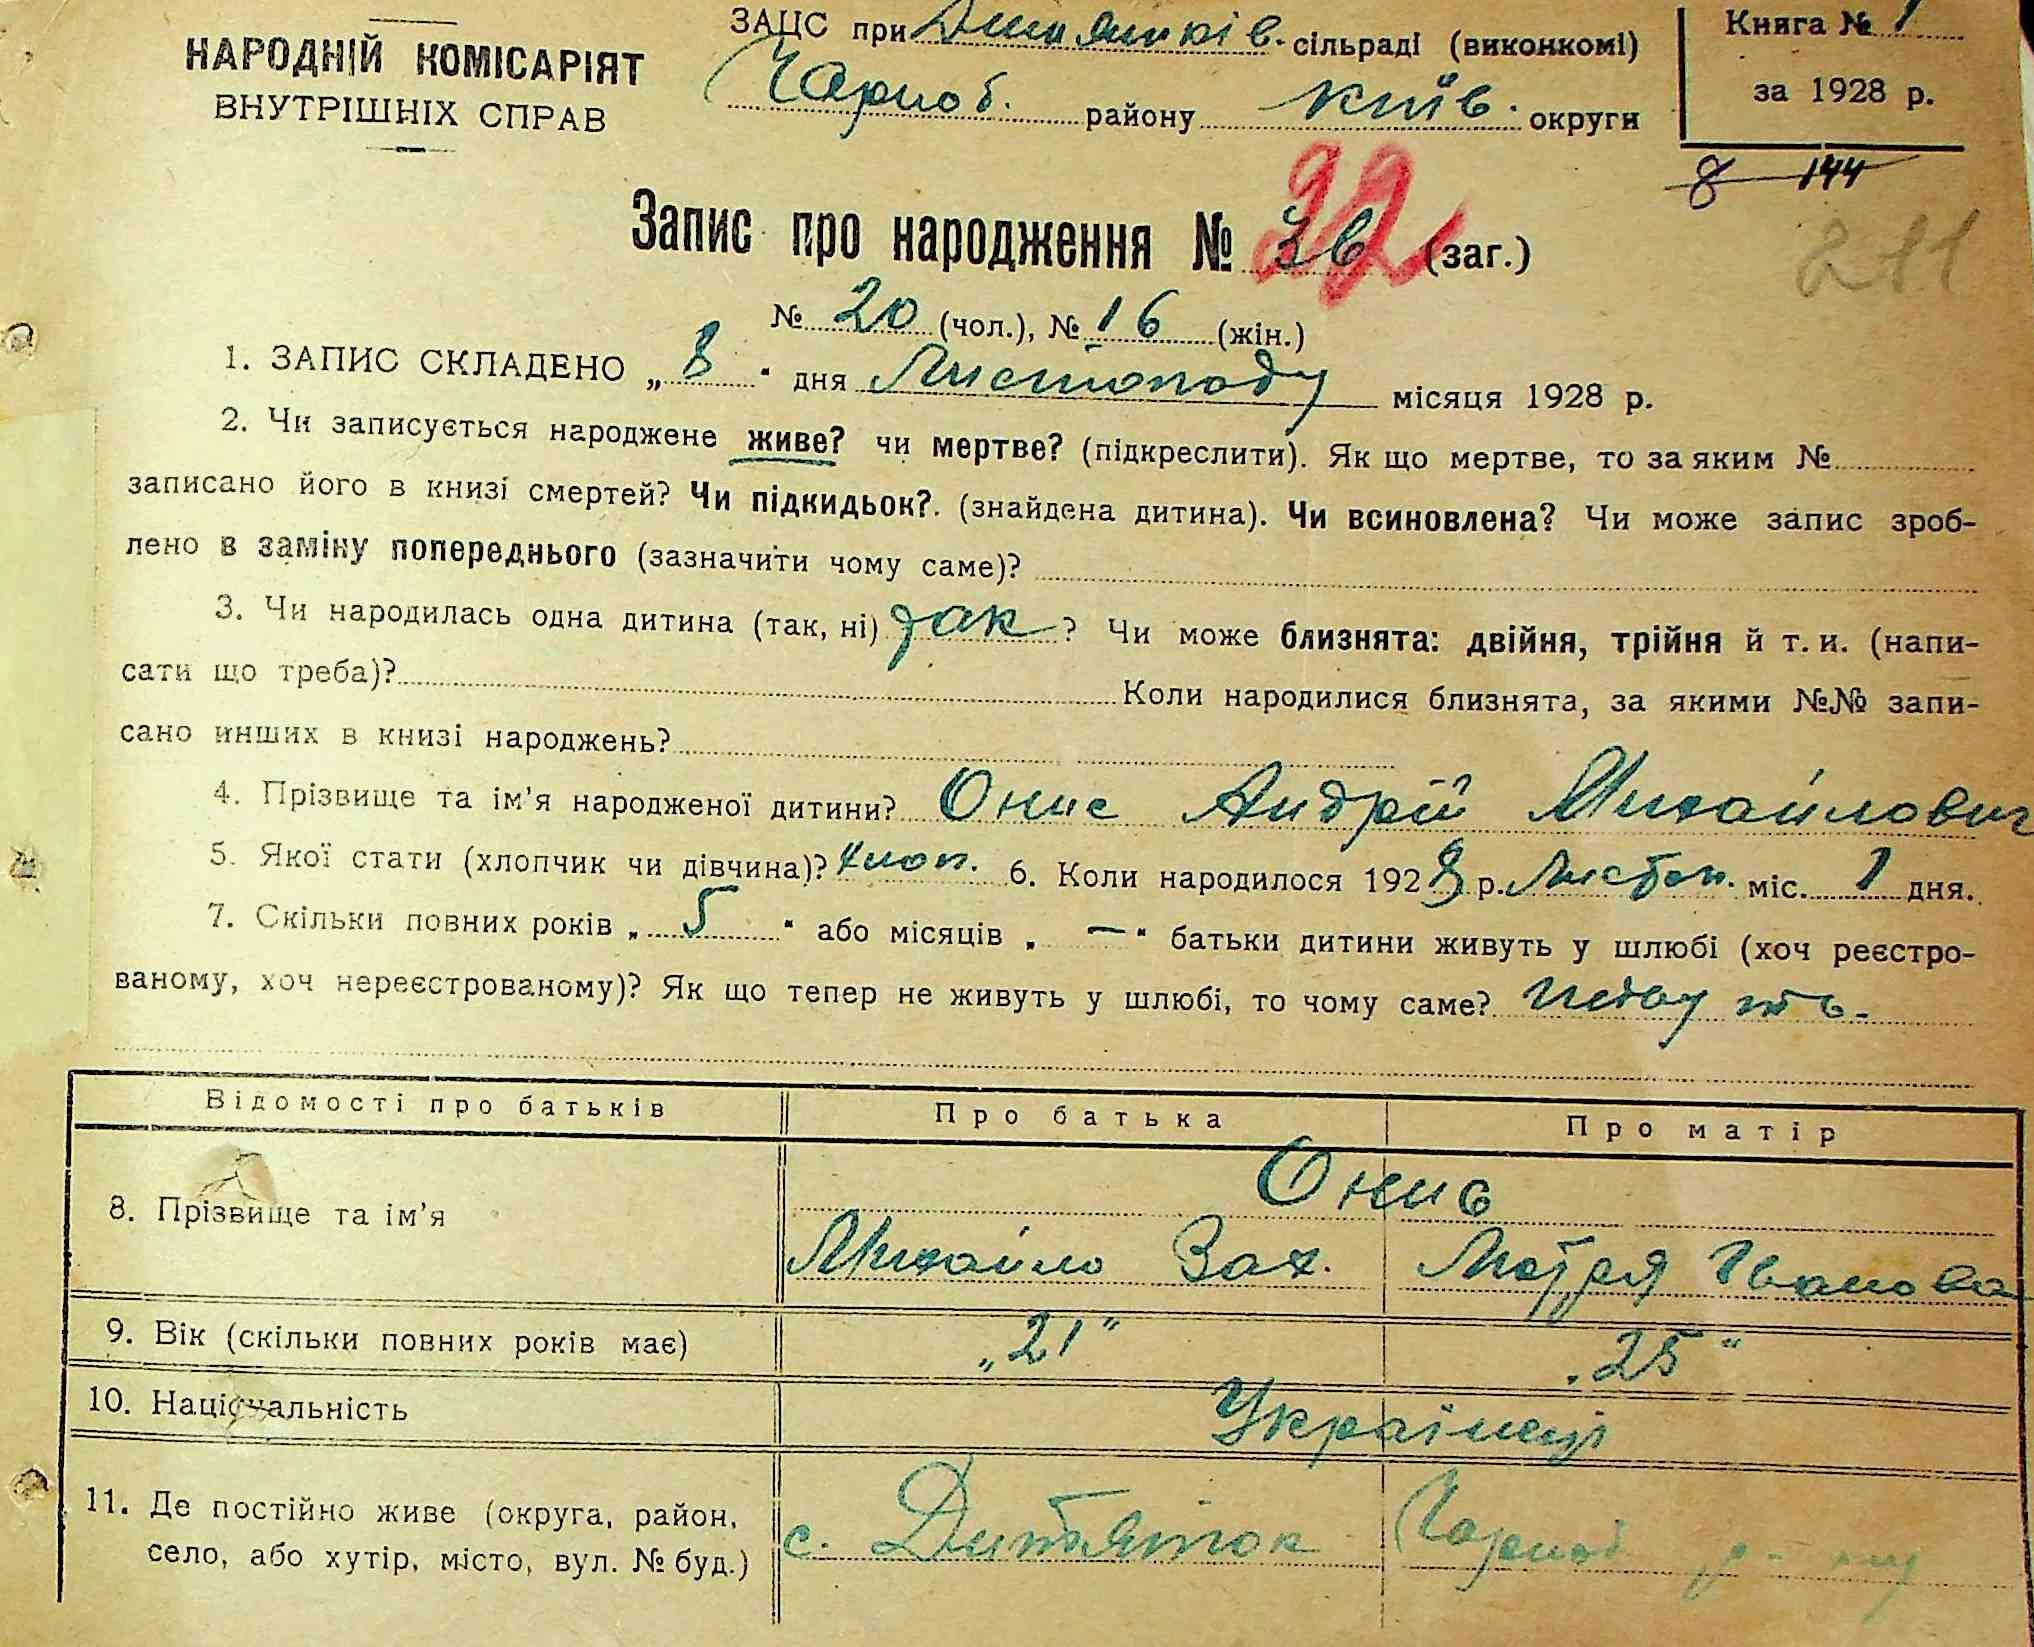 НАРОДНІЙ КОМІСАРІЯТ
ВНУТРІШНІХ СПРАВ
ЗАЦС при Дитятків. сільраді (виконкомі)
Чорноб. району Київ. округи
Книга № 1
за 1928 р.
8 144
211
Запис про народження № 36 (заг.)
22
№ 20 (чол.), № 16 (жін.)
1. ЗАПИС СКЛАДЕНО „ 8 “ дня Листопаду місяця 1928 р.
2. Чи записується народжене живе? чи мертве? (підкреслити). Як що мертве, то за яким №
записано його в книзі смертей? Чи підкидьок?. (знайдена дитина). Чи всиновлена? Чи може запис зроб-
лено в заміну попереднього (зазначити чому саме)?
3. Чи народилась одна дитина (так, ні) так ? Чи може близнята: двійня, трійня й т. и. (напи-
сати що треба)? Коли народилися близнята, за якими №№ запи-
сано инших в книзі народжень?
4. Прізвище та ім'я народженої дитини? Онис Андрій Михайлович
5. Якої стати (хлопчик чи дівчина)? хлоп. 6. Коли народилося 1928 р. Листоп. міс. 1 дня.
7. Скільки повних років „ 5 “ або місяців „ — “ батьки дитини живуть у шлюбі (хоч реєстро-
ваному, хоч нереєстрованому)? Як що тепер не живуть у шлюбі, то чому саме?
Відомості про батьків Про батька Про матір
Онис
8. Прізвище та ім'я Михайло Зах. Мотря Іванова
9. Вік (скільки повних років має) „21“ „25“
10. Національність Українці
11. Де постійно живе (округа, район,
село, або хутір, місто, вул. № буд.) с. Дитяток Чорноб р-ну